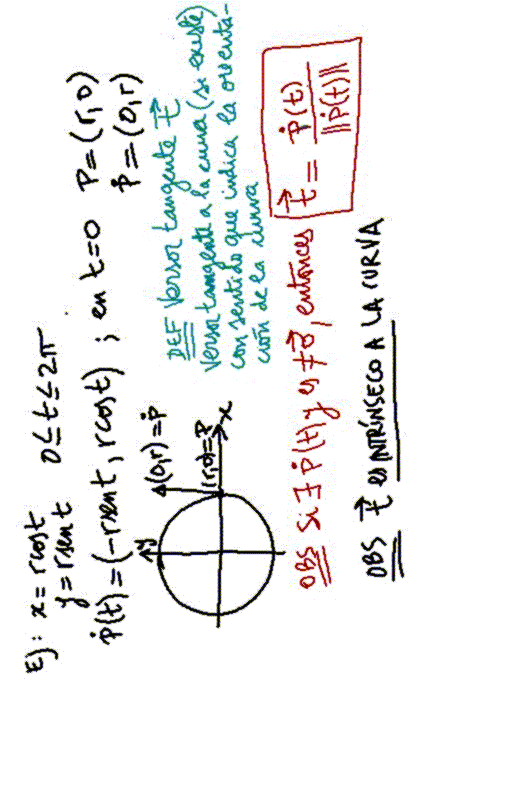 Ej: x = r cos t
y = r sen t   0 ≤ t ≤ 2π
ṗ(t) = (-r sen t, r cos t) ; en t=0   P = (r,0)
ṗ = (0,r)
y
(0,r) = ṗ
(r,0) = P
x
DEF Versor tangente t⃗
Versor tangente a la curva (si existe)
con sentido que indica la orienta-
ción de la curva
OBS Si ∃ ṗ(t) y es ≠ 0⃗, entonces t⃗ = ṗ(t) / ||ṗ(t)||
OBS t⃗ es INTRÍNSECO A LA CURVA